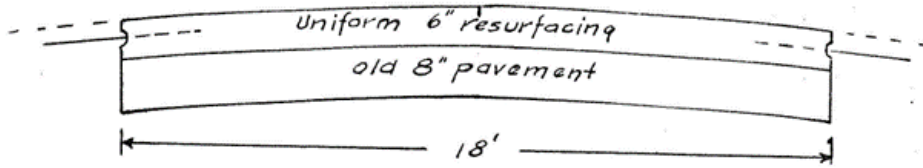 Uniform 6" resurfacing
old 8" pavement
18'